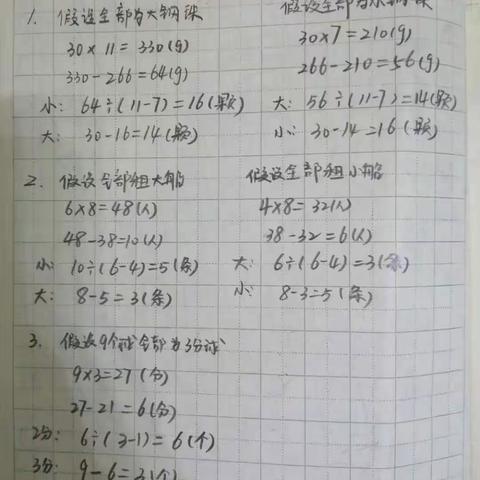 1. 假设全部为大钢珠
30×11=330(g)
330-266=64(g)
小: 64÷(11-7)=16(颗)
大: 30-16=14(颗)
假设全部为小钢珠
30×7=210(g)
266-210=56(g)
大: 56÷(11-7)=14(颗)
小: 30-14=16(颗)
2. 假设全部租大船
6×8=48(人)
48-38=10(人)
小: 10÷(6-4)=5(条)
大: 8-5=3(条)
假设全部租小船
4×8=32(人)
38-32=6(人)
大: 6÷(6-4)=3(条)
小: 8-3=5(条)
3. 假设9个球全部为3分球
9×3=27(分)
27-21=6(分)
2分: 6÷(3-1)=6(个)
3分: 9-6=3(个)